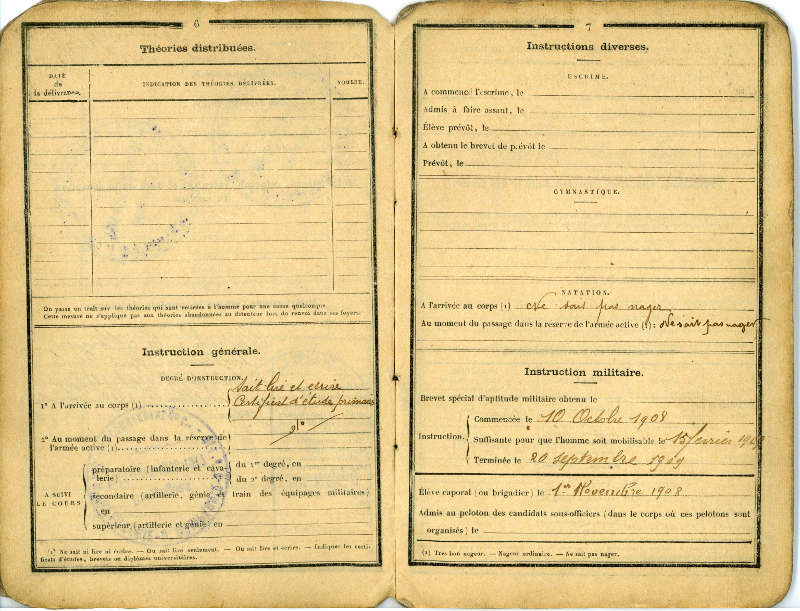 6
Théories distribuées.
DATE
de
la délivrance
INDICATION DES THÉORIES DÉLIVRÉES.
On passe un trait sur les théories qui sont retirées à l'homme pour une cause quelconque.
Cette mesure ne s'applique pas aux théories abandonnées au détenteur lors du renvoi dans ses foyers.
Instruction générale.
DEGRÉ D'INSTRUCTION.
1° A l'arrivée au corps (1)
Sait lire et écrire
Certificat d'étude primaire
2° Au moment du passage dans la réserve de
l'armée active (1)
A SUIVI
LE COURS
préparatoire (infanterie et cava-
lerie)
du 1er degré, en
du 2e degré, en
secondaire (artillerie, génie et train des équipages militaires)
en
supérieur (artillerie et génie) en
(1) Ne sait ni lire ni écrire. — Ou sait lire seulement. — Ou sait lire et écrire. — Indiquer les certi-
ficats d'études, brevets ou diplômes universitaires.
7
Instructions diverses.
ESCRIME.
A commencé l'escrime, le
Admis à faire assaut, le
Élève prévôt, le
A obtenu le brevet de prévôt le
Prévôt, le
GYMNASTIQUE.
NATATION.
A l'arrivée au corps (1) Ne sait pas nager
Au moment du passage dans la réserve de l'armée active (1): Ne sait pas nager
Instruction militaire.
Brevet spécial d'aptitude militaire obtenu le
Instruction.
Commencée le 10 Octobre 1908
Suffisante pour que l'homme soit mobilisable le 15 février 1909
Terminée le 20 septembre 1909
Élève caporal (ou brigadier) le 1er Novembre 1908
Admis au peloton des candidats sous-officiers (dans le corps où ces pelotons sont
organisés) le
(1) Très bon nageur. — Nageur ordinaire. — Ne sait pas nager.